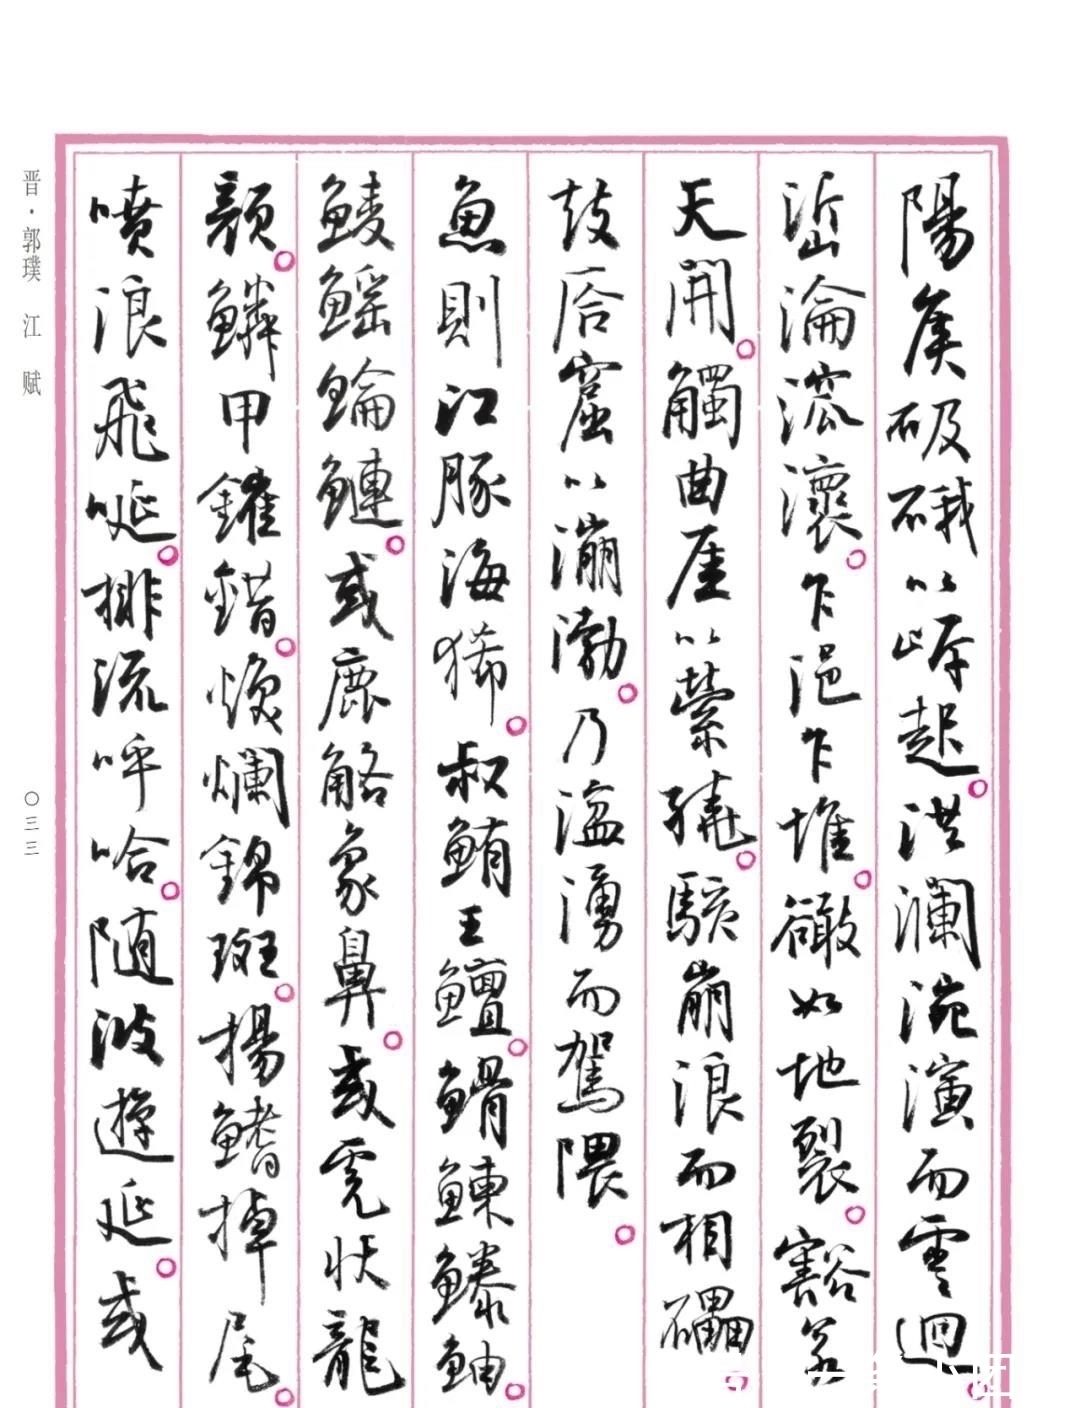 陽侯砐硪以岸起。洪瀾涴演而雲迴。
峾淪溛瀤。乍浥乍堆。豃如地裂。豁若
天開。觸曲厓以縈繞。駭崩浪而相礧。
鼓㕎窟以漰渤。乃湓湧而駕隈。
魚則江豚海狶。叔鮪王鱣。䱻鰊䲢鮋。
鯪鰩鯩鰱。或鹿觡象鼻。或虎狀龍
顏。鱗甲鏙錯。煥爛錦斑。揚鰭掉尾。
噴浪飛唌。排流呼哈。随波遊延。或
晋·郭璞 江赋
〇三三